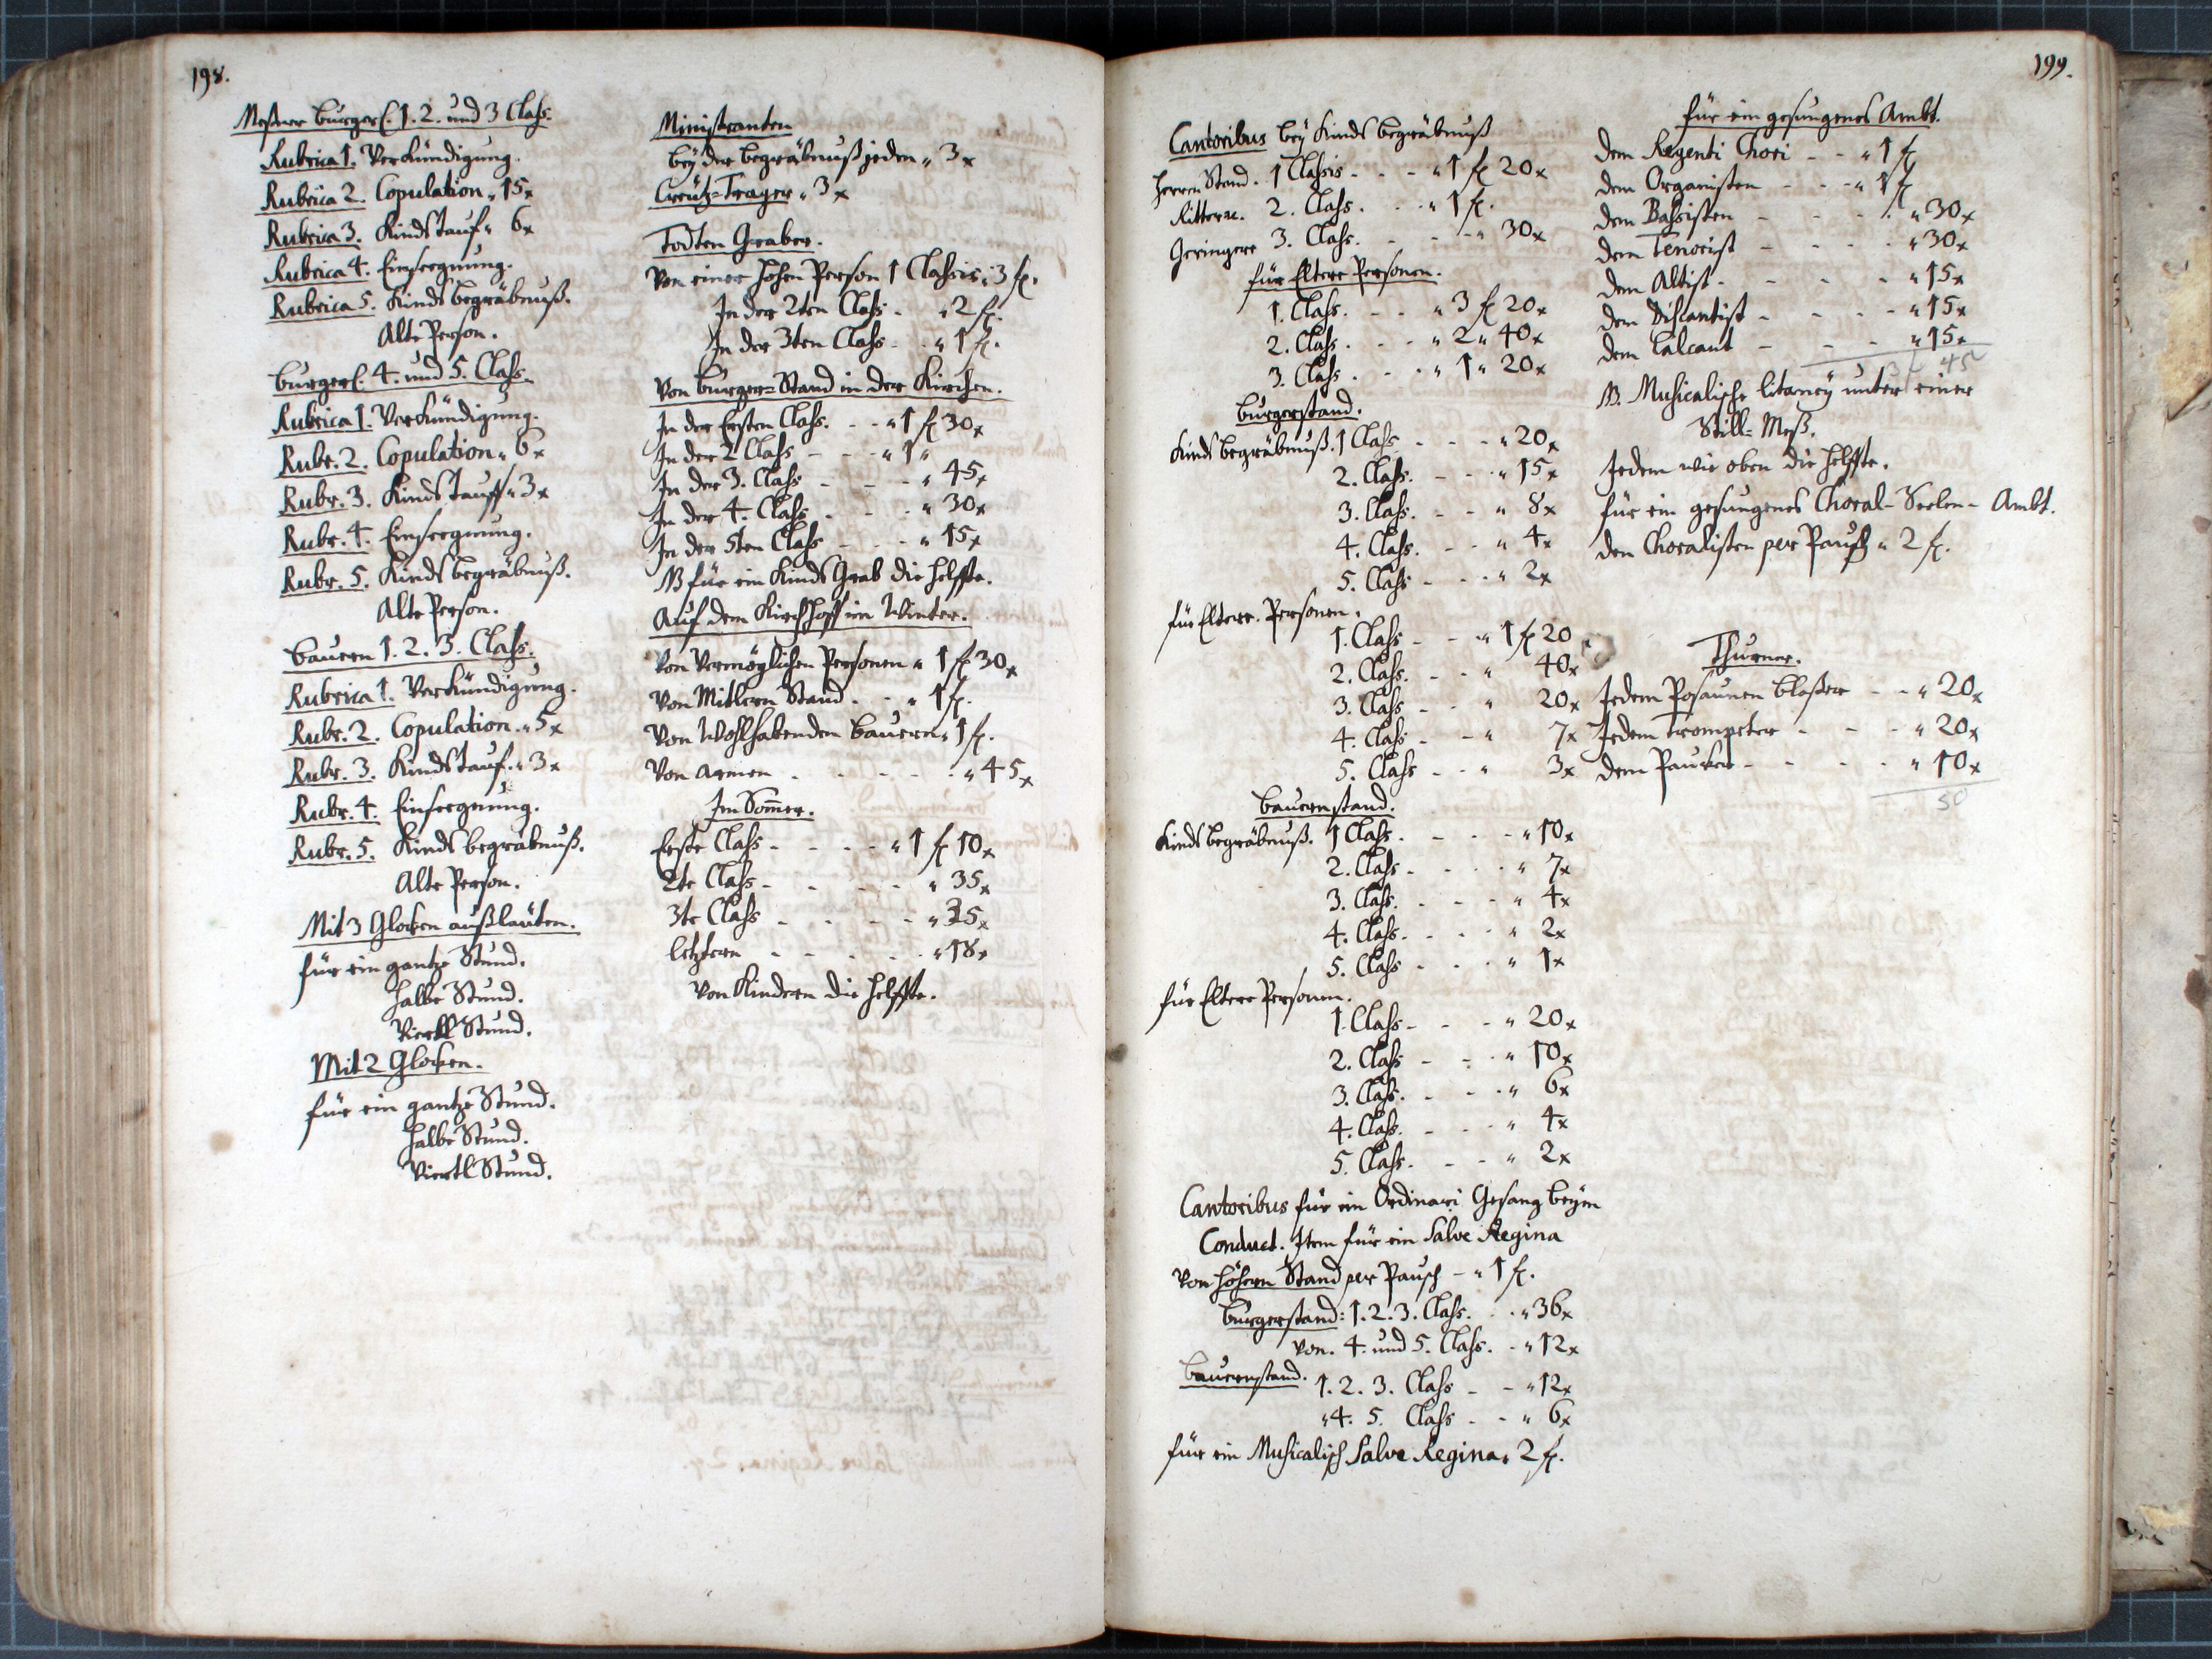 198.
Meßner burgerl. 1. 2. und 3 Class.
Rubrica 1. Verkündigung.
Rubrica 2. Copulation „ 15x
Rubrica 3. Kindstauf „ 6x
Rubrica 4. Einseegnung.
Rubrica 5. Kinds begräbnuß.
Alte Person.
burgerl. 4. und 5. Class.
Rubrica 1. Verkündigung.
Rubr. 2. Copulation „ 6x
Rubr. 3. Kindstauff „ 3x
Rubr. 4. Einseegnung.
Rubr. 5. Kinds begräbnuß.
Alte Person.
bauern 1. 2. 3. Class.
Rubrica 1. Verkündigung.
Rubr. 2. Copulation „ 5x
Rubr. 3. Kindstauf „ 3x
Rubr. 4. Einseegnung.
Rubr. 5. Kinds begräbnuß.
Alte Person.
Mit 3 Glocken außläuten.
für ein gantze Stund.
halbe Stund.
Viertl Stund.
Mit 2 Glocken.
für ein gantze Stund.
halbe Stund.
Viertl Stund.
Ministranten
bey der begräbnuß jeden „ 3x
Creütz-Trager „ 3x
Todten Graber.
Von einer hohen Person 1 Classis „ 3 fl.
In der 2ten Class - „ 2 fl.
In der 3ten Class - „ 1 fl.
Von burger-Stand in der Kirchen.
In der Ersten Class. - - „ 1 fl 30x
In der 2 Class - - - „ 1 „
In der 3. Class - - - „ 45x
In der 4. Class - - - „ 30x
In der 5ten Class - - - „ 15x
NB für ein Kinds Grab die helffte.
Auf dem Kirchhoff im Winter.
Von Vermöglichen Personen „ 1 fl 30x
Von Mitlern Stand - - „ 1 fl.
Von Wohlhabenden bauern „ 1 fl.
Von armen - - - - - „ 45x
Im Som̅er.
Erste Class - - - - „ 1 fl 10x
2te Class - - - - - „ 35x
3te Class - - - - - „ 25x
letztern - - - - - „ 18x
Von Kindern die helffte.
199.
Cantoribus bey Kinds begräbnuß
Herren Stand. 1 Classis - - - „ 1 fl 20x
Ritter 2. Class. - - „ 1 fl.
Geringere 3. Class. - - - „ 30x
für Eltere Personen.
1. Class. - - „ 3 fl 20x
2. Class. - - „ 2 „ 40x
3. Class. - - „ 1 „ 20x
burgerstand.
Kinds begräbnuß. 1 Class - - - „ 20x
2. Class. - - „ 15x
3. Class. - - „ 8x
4. Class. - - „ 4x
5. Class - - - „ 2x
für Eltere Personen.
1. Class - - „ 1 fl 20
2. Class. - - „ 40x
3. Class - - „ 20x
4. Class - - „ 7x
5. Class - - „ 3x
bauernstand.
Kinds begräbnuß. 1 Class. - - - „ 10x
2. Class. - - - „ 7x
3. Class. - - - „ 4x
4. Class. - - - „ 2x
5. Class - - - „ 1x
für Eltere Personen.
1. Class - - - „ 20x
2. Class - - - „ 10x
3. Class. - - - „ 6x
4. Class. - - - „ 4x
5. Class. - - - „ 2x
Cantoribus für ein Ordinari Gesang beym
Conduct. Item für ein Salve Regina
Von höhern Stand per Pausch - „ 1 fl.
burgerstand: 1. 2. 3. Class. - - „ 36x
von. 4. und 5. Class. - „ 12x
bauernstand. 1. 2. 3. Class - - „ 12x
„ 4. 5. Class - - „ 6x
für ein Musicalisch Salve Regina „ 2 fl.
für ein gesungenes Ambt.
dem Regenti Chori - - „ 1 fl
dem Organisten - - - „ 1 fl
dem Bassisten - - - - „ 30x
dem Tenorist - - - - „ 30x
dem Altist - - - - „ 15x
dem Discantist - - - - „ 15x
dem Calcant - - - „ 15x
3 f 45
NB. Musicalische litaney unter einer
Still-Meß.
Jedem wie oben die helffte.
für ein gesungenes Choral-Seelen-Ambt.
den Choralisten per Pausch „ 2 fl.
Thurner.
Jedem Posaunen blaßer - - „ 20x
Jedem Trompeter - - - „ 20x
dem Paucker - - - - „ 10x
50